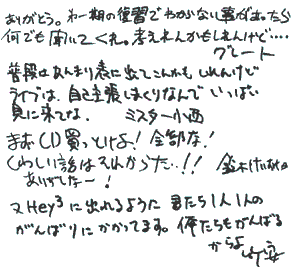 ありがとう。わー期の復習でわかんない事があったら
何でも聞いてくれ。考えれんかもしれんけど‥‥
グレート
普段はあんまり表に出てこんかもしれんけど
ライブは、自己主張しまくりなんで いっぱい
見に来てな。 ミスター小西
まあCD買っとけよ！全部な！
くわしい話はそれからだ‥！！ 鈴木けいすけ
ありがとなー！
又Hey³に出れるように 君たち1人1人の
がんばりにかかってます。俺たちもがんばる
からよ